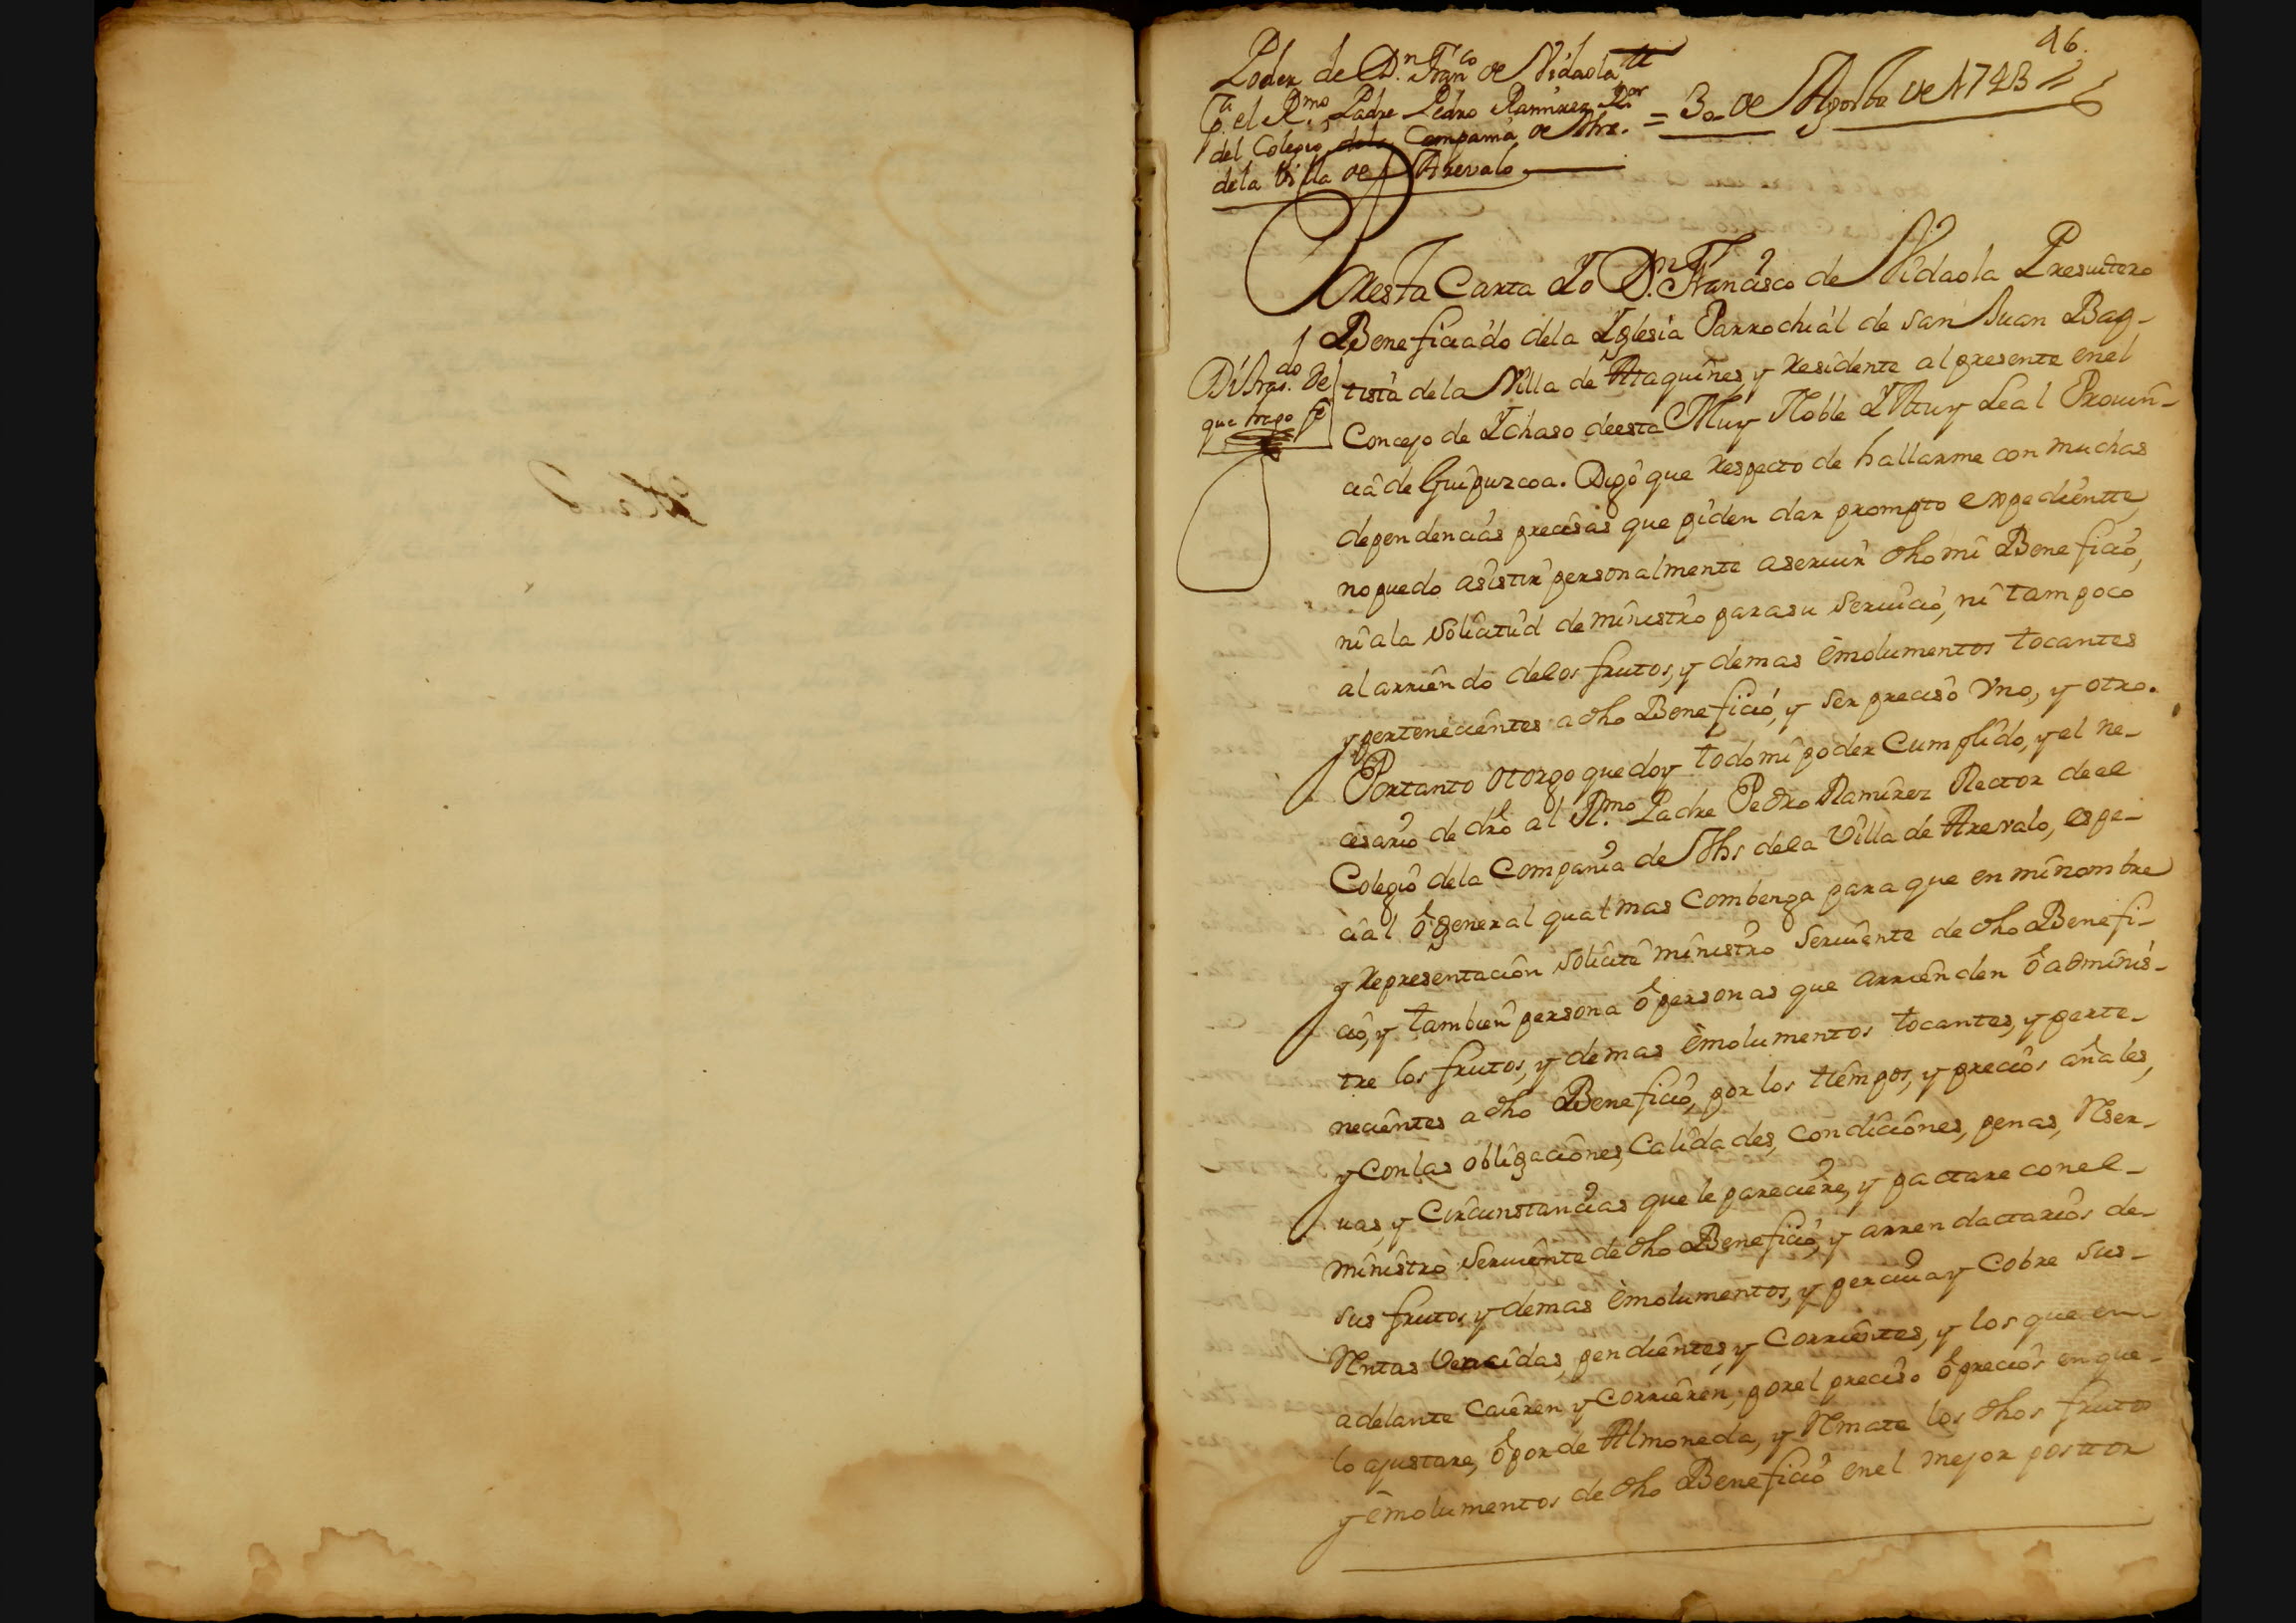 46.
Poder de Dn. Franco de Vidaola
pa. el Rmo. Padre Pedro Ramirez Ror
del Colegio dela Compania de Jhs.
dela Villa de Arevalo
= 30 de Agosto de 1743 =
Blanco
Por esta Carta Yo Dn. Francisco de Vidaola Presuitero
Beneficiado dela Yglesia Parrochial de San Juan Bap-
tista dela Villa de Ataquines, y Residente al presente enel
Concejo de Ychaso deesta Muy Noble Y Muy Leal Prouin-
cia de Guipuzcoa. Digo que Respecto de hallarme con muchas
dependencias precisas que piden dar prompto expedientte,
nopuedo asistir personalmente aseruir dho mi Beneficio,
niala Solicitud de ministro parasu Seruicio, ni tampoco
al arriendo delos frutos, y demas emolumentos tocantes
y pertenecientes a dho Beneficio, y Ser preciso Vno, y otro.
Portanto otorgo que doy todo mi poder Cumplido, y el ne-
cesario de dro al Rmo. Padre Pedro Ramirez Rector deel
Colegio dela Compania de Jhs dela Villa de Arevalo, espe-
cial ó general qual mas Combenga para que en minombre
y Representacion Solicite ministro Seruiente de dho Benefi-
cio, y tambien persona ó personas que arrienden ó adminis-
tre los frutos, y demas emolumentos tocantes, y perte-
necientes a dho Beneficio, por los tiempos, y precios añales,
y Conlas obligaciones, Calidades, Condiciones, penas, Reser-
uas, y Circunstancias que le pareciere, y pactare conel-
ministro Seruiente de dho Beneficio, y arrendactarios de-
sus frutos, y demas emolumentos, y perciua y Cobre sus-
Rentas Vencidas, pendientes, y Corrientes, y los que en-
adelante Caieren y Corrieren, porel preciso ó precios en que-
lo ajustare, ó por de Almoneda, y Remate los dhos frutos
y emolumentos de dho Beneficio enel mejor posttor
Di Trasdo. De
que hago fe